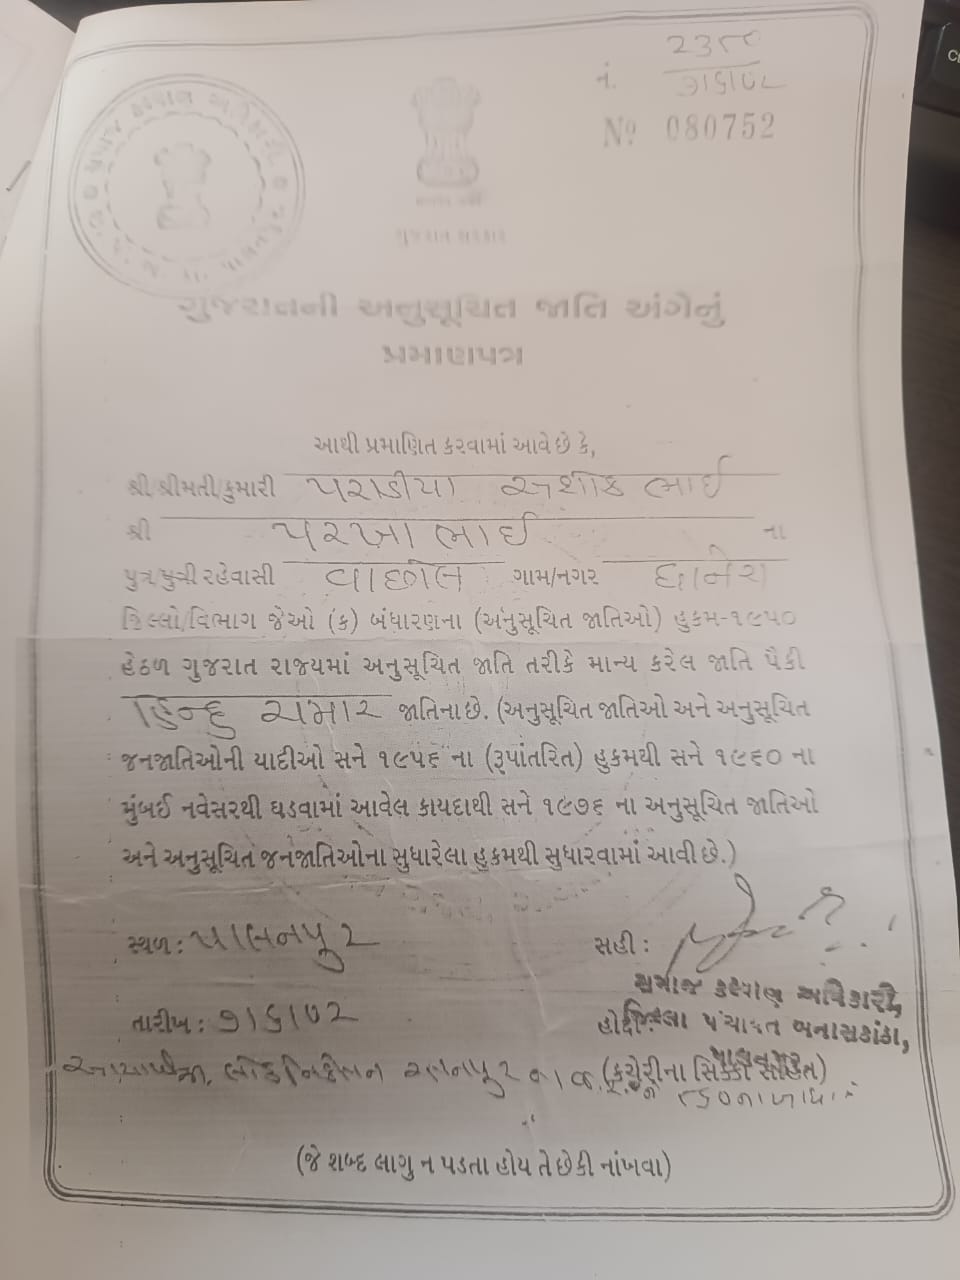 નં. 
Nº 080752
ગુજરાત સરકાર
ગુજરાતની અનુસૂચિત જાતિ અંગેનું
પ્રમાણપત્ર
આથી પ્રમાણિત કરવામાં આવે છે કે,
શ્રી/શ્રીમતી/કુમારી પરાડીયા અશોકભાઈ
શ્રી પરખાભાઈ ના
પુત્ર/પુત્રી રહેવાસી વાછોલ ગામ/નગર ધાનેરા
જિલ્લો/વિભાગ જેઓ (ક) બંધારણના (અનુસૂચિત જાતિઓ) હુકમ-૧૯૫૦
હેઠળ ગુજરાત રાજ્યમાં અનુસૂચિત જાતિ તરીકે માન્ય કરેલ જાતિ પૈકી
હિન્દુ ચમાર જાતિના છે. (અનુસૂચિત જાતિઓ અને અનુસૂચિત
જનજાતિઓની યાદીઓ સને ૧૯૫૬ ના (રૂપાંતરિત) હુકમથી સને ૧૯૬૦ ના
મુંબઈ નવેસરથી ઘડવામાં આવેલ કાયદાથી સને ૧૯૭૬ ના અનુસૂચિત જાતિઓ
અને અનુસૂચિત જનજાતિઓના સુધારેલા હુકમથી સુધારવામાં આવી છે.)
સ્થળ : પાલનપુર સહી :
સમાજ કલ્યાણ અધિકારી,
તારીખ : હોદ્દો જિલ્લા પંચાયત બનાસકાંઠા,
પાલનપુર
(કચેરીના સિક્કા સહિત)
(જે શબ્દ લાગુ ન પડતા હોય તે છેકી નાંખવા)